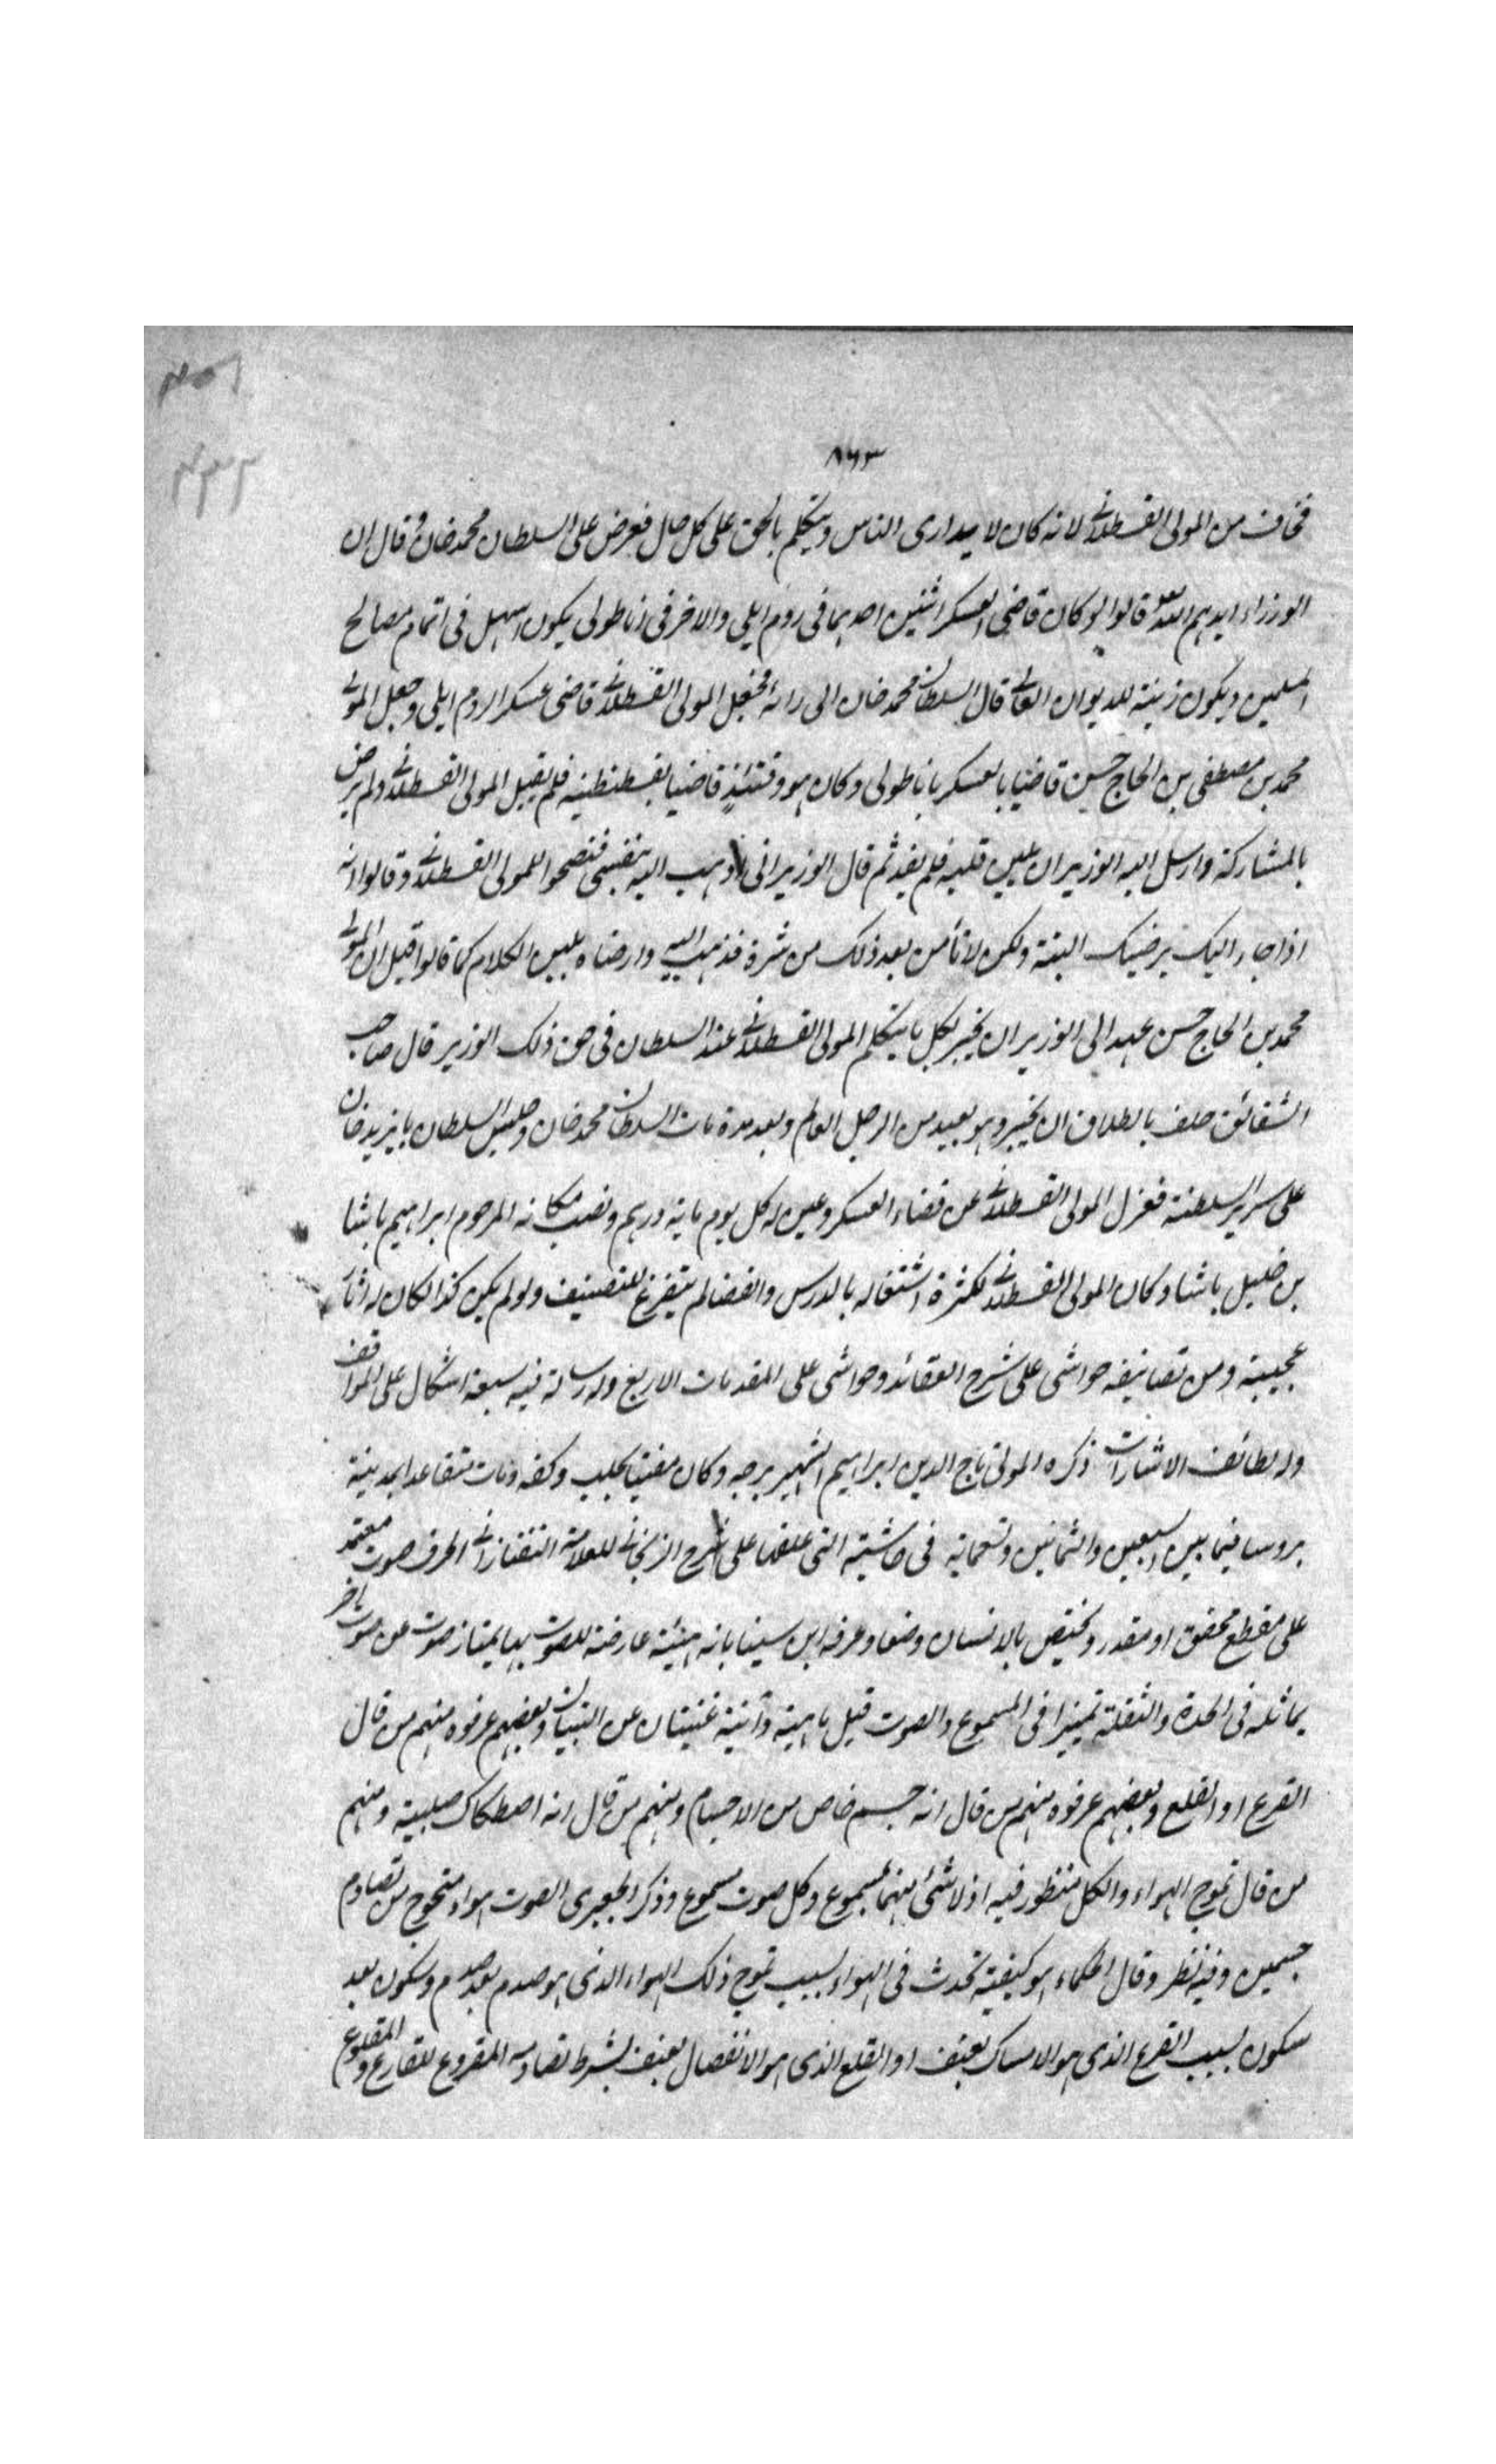 ٨٦٣
فخاف من المولى القسطلانى لانه كان لا يدارى الناس ويتكلم بالحق على كل حال فعرض على السلطان محمد خان وقال ان
الوزراء ايدهم الله قالوا لو كان قاضى العسكر اثنين احدهما فى روم ايلى والاخر فى اناطولى يكون اسهل فى اتمام مصالح
المسلمين ويكون زينة للديوان العالى قال السلطان محمد خان الى رائه فجعل المولى القسطلانى قاضى عسكر الروم ايلى وجعل المولى
محمد بن مصطفى بن الحاج حسن قاضيا بالعسكر باناطولى وكان هو وقتئذ قاضيا بقسطنطنيه فلم يقبل المولى القسطلانى ولم يرض
بالمشاركة وارسل اليه الوزير ان يلين قلبه فلم يفد ثم قال الوزير انى اذهب اليه بنفسى فنصحوا للمولى القسطلانى وقالوا انه
اذا جاء اليك يرضيك البتة ولكن لا تأمن بعد ذلك من شره فذهب اليه وارضاه بلين الكلام كما قالوا قيل ان المولى
محمد بن الحاج حسن عهد الى الوزير ان يخبر بكل ما يتكلم المولى القسطلانى عند السلطان فى حق ذلك الوزير قال صاحب
الشقائق حلف بالطلاق ان يخبر وهو بعيد من الرجل العالم وبعد مدة مات السلطان محمد خان وجلس السلطان بايزيد خان
على سرير السلطنة فعزل المولى القسطلانى عن قضاء العسكر وعين له كل يوم ماية درهم ونصب مكانه المرحوم ابراهيم باشا
بن خليل باشا وكان المولى القسطلانى لكثرة اشتغاله بالدرس والقضا لم يتفرغ للتصنيف ولو لم يكن كذا لكان له اثار
عجيبة ومن تصانيفه حواشى على شرح العقائد وحواشى على المقدمات الاربع وله رسالة فيه سبعة اشكال على المواقف
وله لطائف الاشارات ذكره المولى تاج الدين ابراهيم الشهير برجه وكان مفتيا بحلب وكفه ومات متقاعدا بمدينة
بروسا فيما بين السبعين والثمانين وتسعمائة فى حاشيته التى علقها على شرح الزنجانى للعلامة التفتازانى الحرف صوت معتمد
على مقطع محقق او مقدر ويختص بالانسان وضعا وعرفه ابن سينا بانه هيئة عارضة للصوت بها يمتاز صوت عن صوت اخر
يماثله فى الحدة والثقلة تميزا فى المسموع والصوت قيل ماهية وأنية غنيتان عن التبيان وبعضهم عرفوه منهم من قال
القرع او القلع وبعضهم عرفوه منهم من قال انه جسم خاص من الاجسام ومنهم من قال انه اصطكاك صلبية ومنهم
من قال تموج الهواء والكل منظور فيه اذ لا شئ منهما بمسموع وكل صوت مسموع وذكر الجعبرى الصوت هواء متموج من تصادم
جسمين وفيه نظر وقال الحكماء هو كيفية تحدث فى الهواء بسبب تموج ذلك الهواء الذى هو صدم بعد صدم وسكون بعد
سكون بسبب القرع الذى هو الامساك بعنف او القلع الذى هو الانفصال بعنف بشرط تقاومه المقروع للقارع والمقلوع